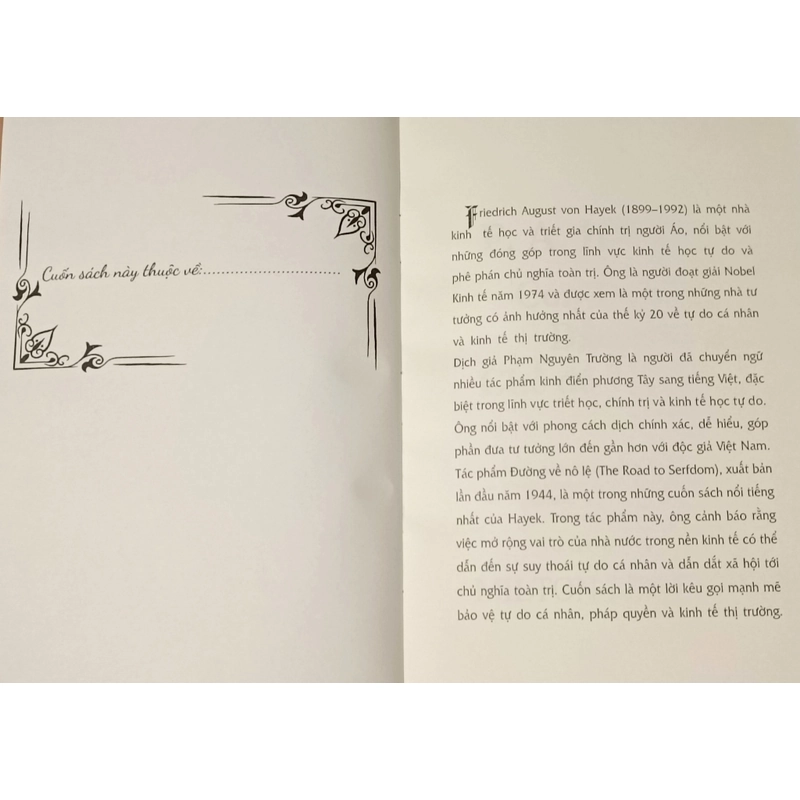 Cuốn sách này thuộc về:..............................
Friedrich August von Hayek (1899–1992) là một nhà
kinh tế học và triết gia chính trị người Áo, nổi bật với
những đóng góp trong lĩnh vực kinh tế học tự do và
phê phán chủ nghĩa toàn trị. Ông là người đoạt giải Nobel
Kinh tế năm 1974 và được xem là một trong những nhà tư
tưởng có ảnh hưởng nhất của thế kỷ 20 về tự do cá nhân
và kinh tế thị trường.
Dịch giả Phạm Nguyên Trường là người đã chuyển ngữ
nhiều tác phẩm kinh điển phương Tây sang tiếng Việt, đặc
biệt trong lĩnh vực triết học, chính trị và kinh tế học tự do.
Ông nổi bật với phong cách dịch chính xác, dễ hiểu, góp
phần đưa tư tưởng lớn đến gần hơn với độc giả Việt Nam.
Tác phẩm Đường về nô lệ (The Road to Serfdom), xuất bản
lần đầu năm 1944, là một trong những cuốn sách nổi tiếng
nhất của Hayek. Trong tác phẩm này, ông cảnh báo rằng
việc mở rộng vai trò của nhà nước trong nền kinh tế có thể
dẫn đến sự suy thoái tự do cá nhân và dẫn dắt xã hội tới
chủ nghĩa toàn trị. Cuốn sách là một lời kêu gọi mạnh mẽ
bảo vệ tự do cá nhân, pháp quyền và kinh tế thị trường.